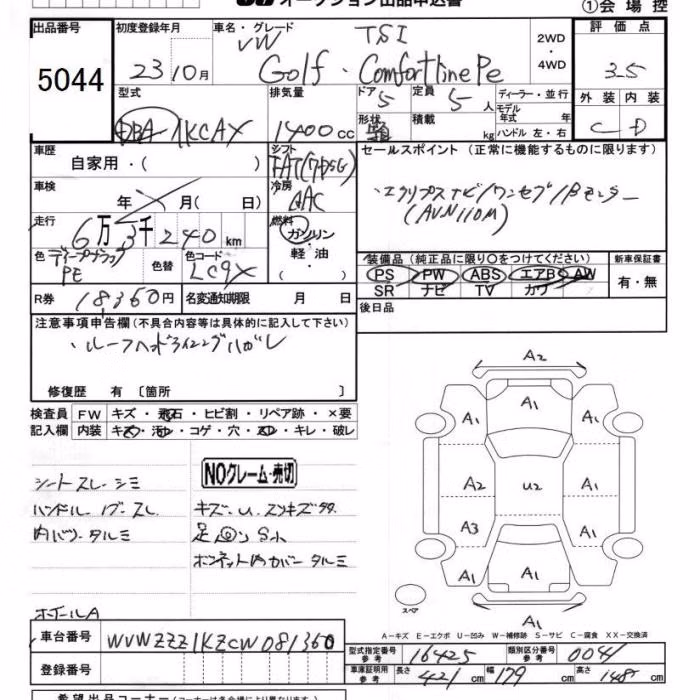 オークション出品申込書 ①会場控
出品番号 初度登録年月 車名・グレード 2WD・4WD 評価点
5044 23年10月 VW TSI 3.5
Golf・ComfortlinePe
型式 排気量 ドア 定員 ディーラー・並行 外装 内装
DBA-1KCAX 1400cc 5 5人 モデル年式 年 C D
形状 積載 kg ハンドル 左・右
車歴 シフト セールスポイント (正常に機能するものに限ります)
自家用・( ) FAT(7DSG)
車検 年 月(日) 冷房 AAC ・エクリプスナビ/ワンセグ/Bモニター
(AVN110M)
走行 6万3千240km 燃料
ガソリン・軽油・( )
色 ディープブラックPE 色替 色コード LC9X 装備品(純正品に限り○をつけてください) 新車保証書
PS PW ABS エアB AW 有・無
SR ナビ TV カワ
R券 18,360円 名変通知期限 月 日 後日品
注意事項申告欄(不具合内容等は具体的に記入して下さい)
・ルーフヘッドライニングハガレ
修復歴 有〔箇所 〕
検査員 FW キズ・飛石・ヒビ割・リペア跡・×要
記入欄 内装 キズ・汚れ・コゲ・穴・スレ・キレ・破レ
NOクレーム・売切
シートスレ・シミ
ハンドル
内バリ・タルミ
キズ・U・スリキズ多
ボンネット内カバータルミ
ホイールA
A2
A1
A1 A1
A2 U2 A1
A3 A1
A1 A1 A1
スペア A1
A-キズ E-エクボ U-凹み W-補修跡 S-サビ C-腐食 XX-交換済
車台番号 WVWZZZ1KZCW081360
型式指定番号 参考 16425 類別区分番号 参考 0041
登録番号 車庫証明用 参考 長さ 421cm 幅 179cm 高さ 148cm
希望出品コーナー